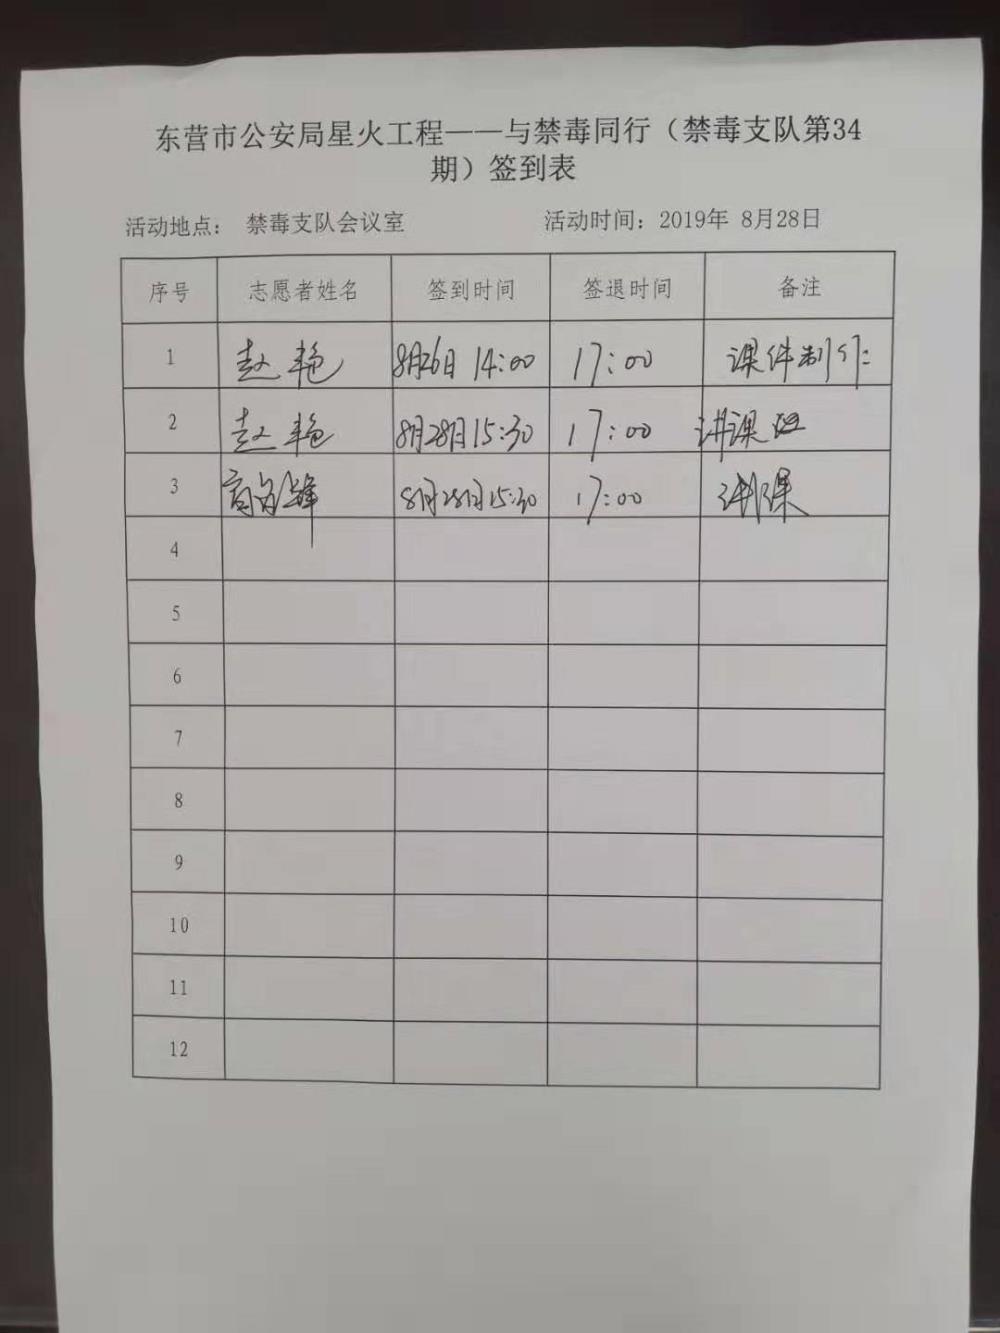 东营市公安局星火工程——与禁毒同行（禁毒支队第34
期）签到表
活动地点： 禁毒支队会议室 活动时间：2019年 8月28日
序号 志愿者姓名 签到时间 签退时间 备注
1 赵艳 8月26日 14:00 17:00 课件制作
2 赵艳 8月28日 15:30 17:00 讲课
3 8月28日 15:30 17:00 讲课
4
5
6
7
8
9
10
11
12